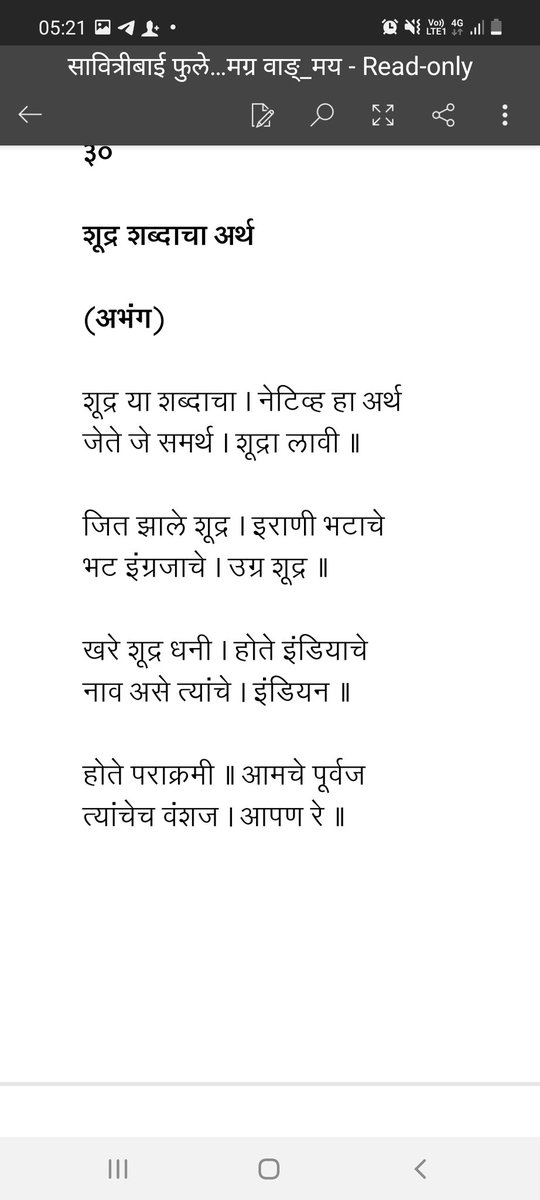 05:21
Vo) 4G
LTE1
सावित्रीबाई फुले...मग्र वाङ्_मय - Read-only
३०
शूद्र शब्दाचा अर्थ
(अभंग)
शूद्र या शब्दाचा । नेटिव्ह हा अर्थ
जेते जे समर्थ । शूद्रा लावी ॥
जित झाले शूद्र । इराणी भटाचे
भट इंग्रजाचे । उग्र शूद्र ॥
खरे शूद्र धनी । होते इंडियाचे
नाव असे त्यांचे । इंडियन ॥
होते पराक्रमी ॥ आमचे पूर्वज
त्यांचेच वंशज । आपण रे ॥